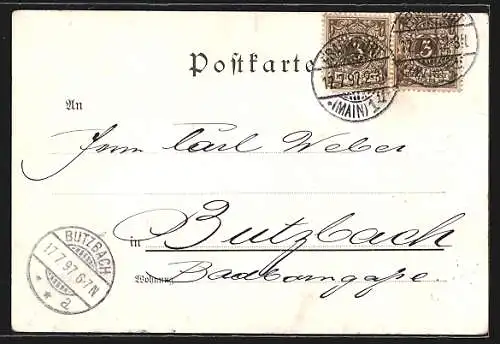 Postkarte
3
3
FRANKFURT
17.7.97.2-3N.
*(MAIN)1
An
Herrn Carl Weber
in Butzbach
Wohnung Badborngasse.
BUTZBACH
17.7.97.6-7N
* * a